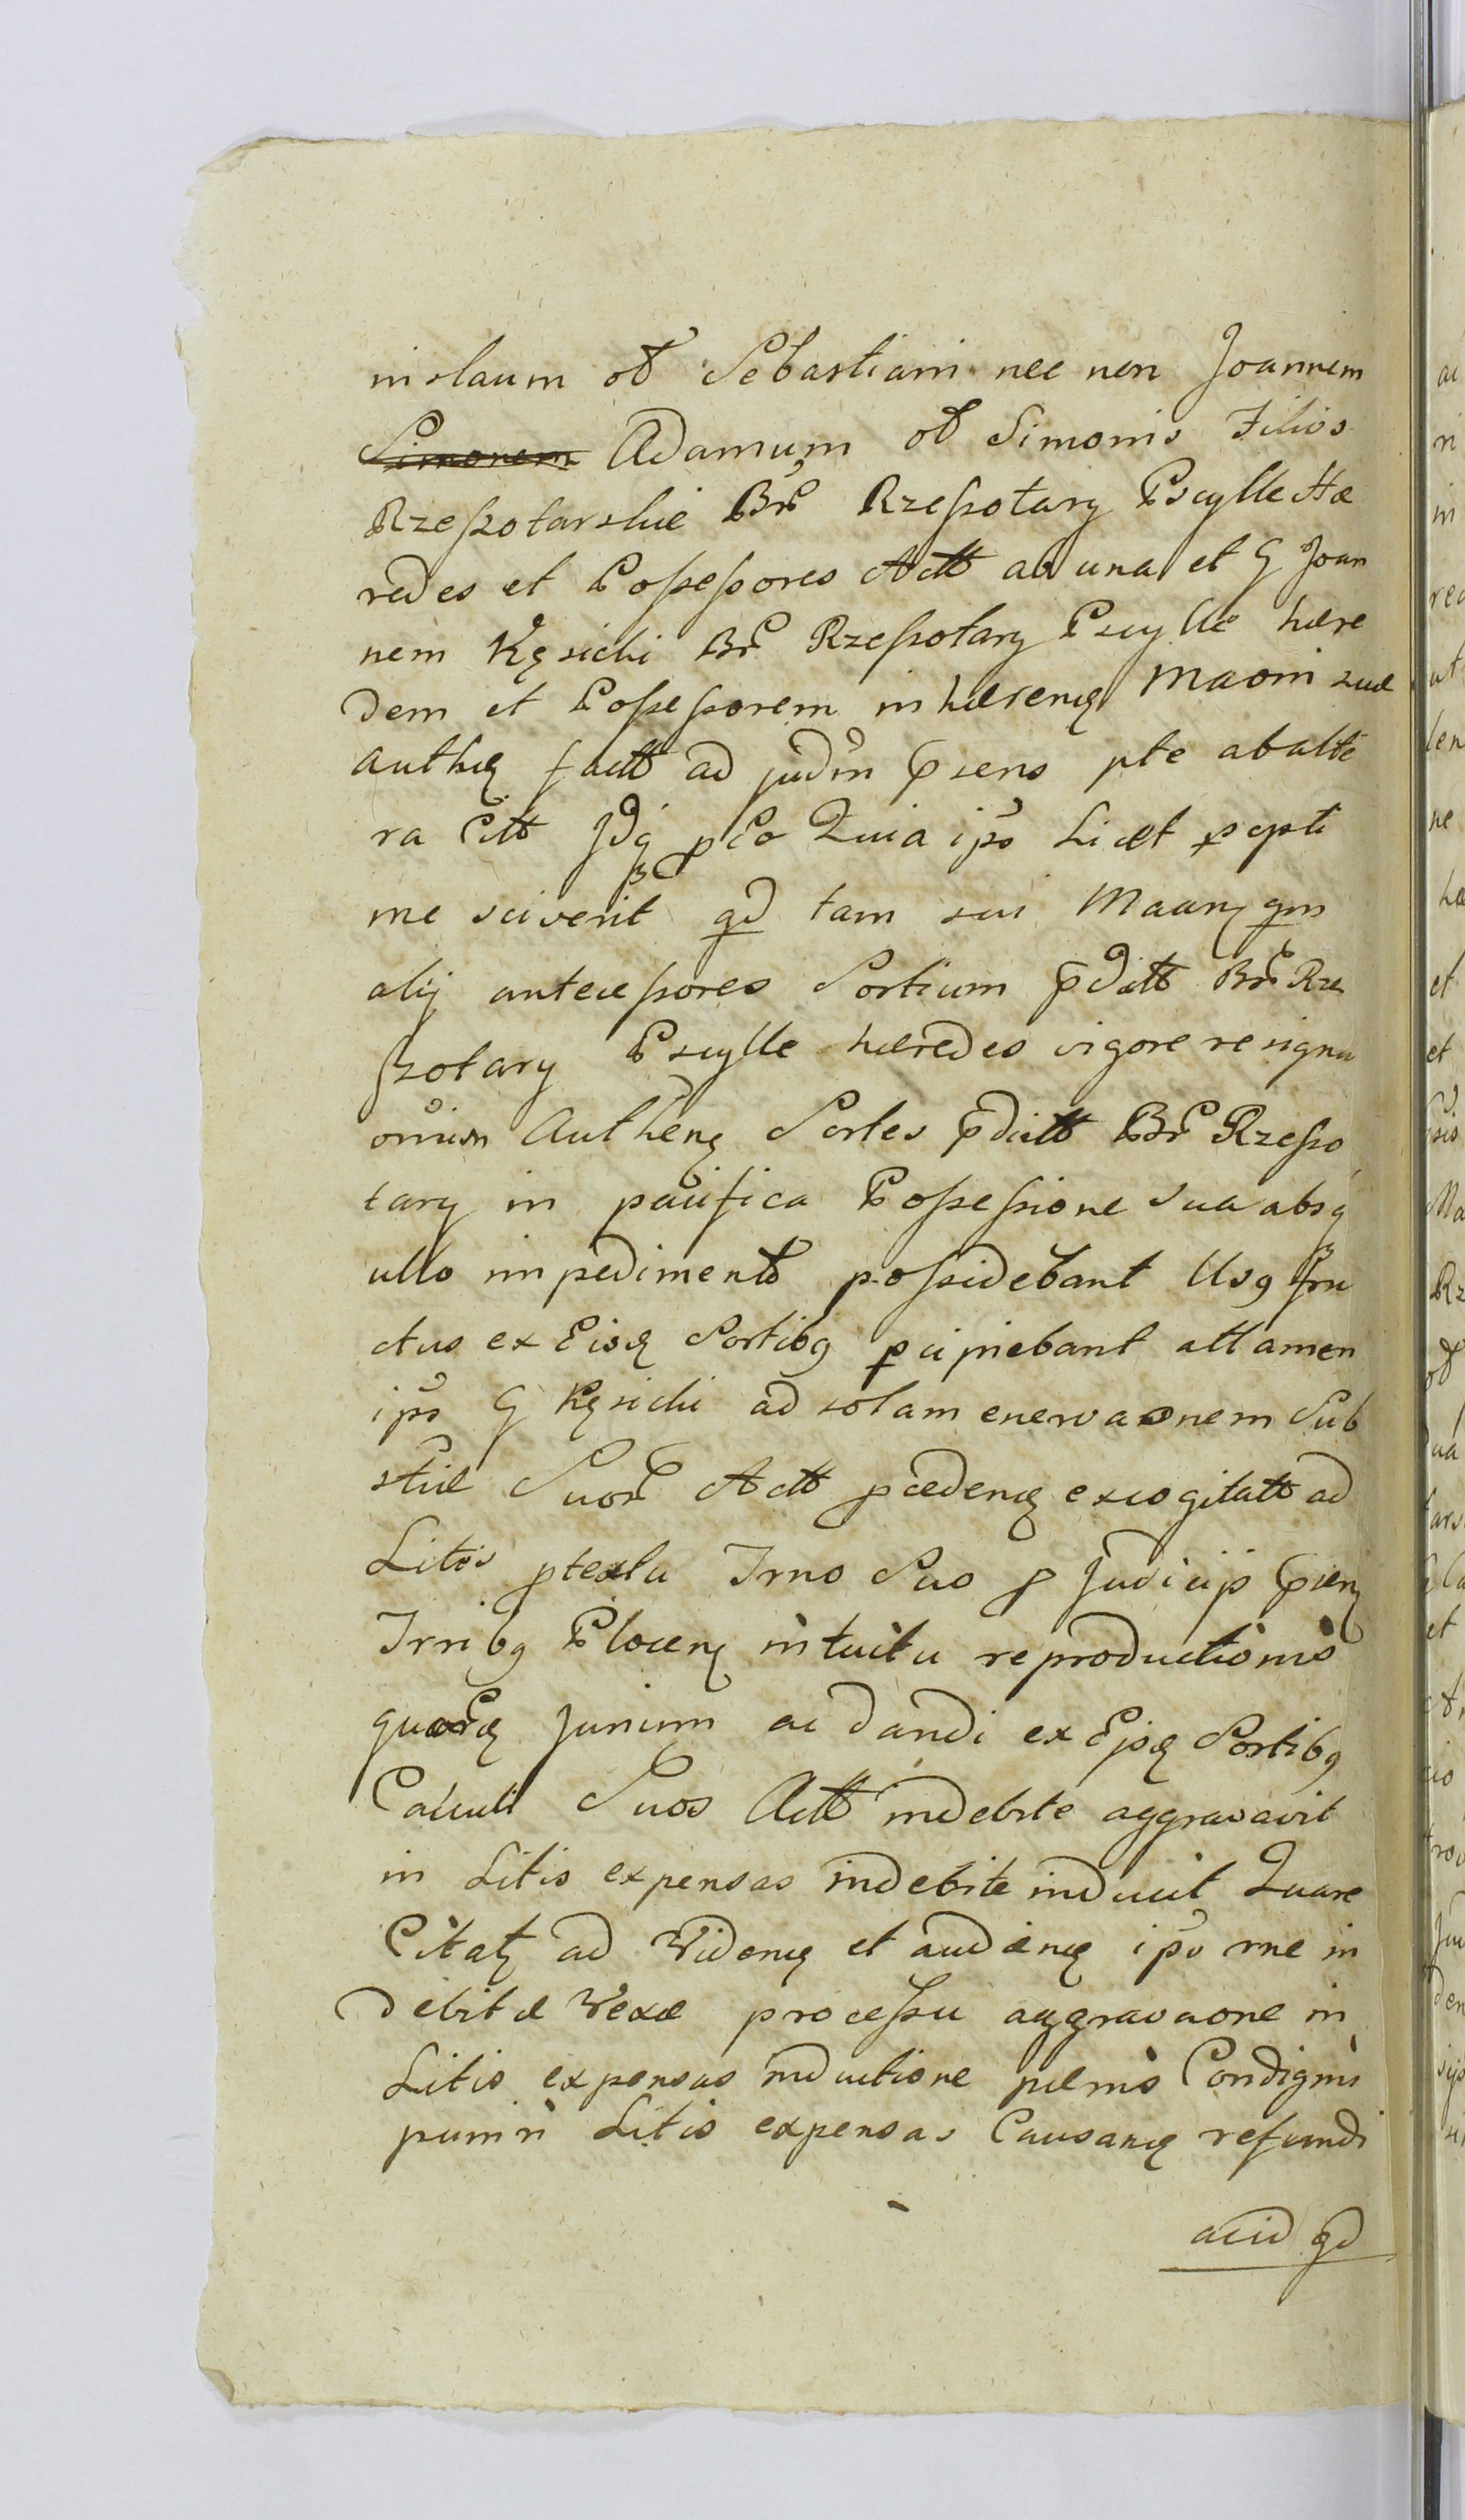 nislaum oł Sebastiani nec non Joannem
Simonem Adamum oł Simonis Filios
Rzeszotarskie Brē Rzeszotary Pscylle Hæ
redes et Possessores Actt ab una et G Joan
nem Kęsicki Brē Rzeszotary Pscylle hære
dem et Possessorem inhærenꝫ Maoni suæ
Authꝫ factt ad judm p̄sens pte ab alte
ra Citt Jdꝗ pto Quia ips Licet p̱opti
me sciverit qd tam sui Maarꝫ qm
alij antecessores Sortium p̄dictt Brē Rze
szotary Pscylle hæredes vigore resigna
onium Authenꝫ Sortes p̄dictt Brē Rzeszo
tary in pacifica Possessione Sua absꝗ
ullo impedimentō possidebant Usꝗ fru
ctus ex Eisꝫ Sortibꝗ p̱cipiebant attamen
ips G Kęsicki ad solam enervaonem Sub
stiæ Suorē Actt pcædenꝫ excogitatt ad
Litis ptextu Trno Suo p Judiciis p̄senꝫ
Trnibꝗ Plocenꝫ intuitu reproductionis
quorꝫ Jurium ac dandi ex Ejsꝫ Sortibꝗ
Calculi Suos Actt indebite aggravavit
in Litis expensas indebite induxit Quare
Citatꝫ ad Videnꝫ et audienꝫ ips rne in
debitæ Vexæ processu aggravaone in
Litis expensas inductione pænis Condignis
puniri Litis expensas Causanꝫ refundi
acid qd